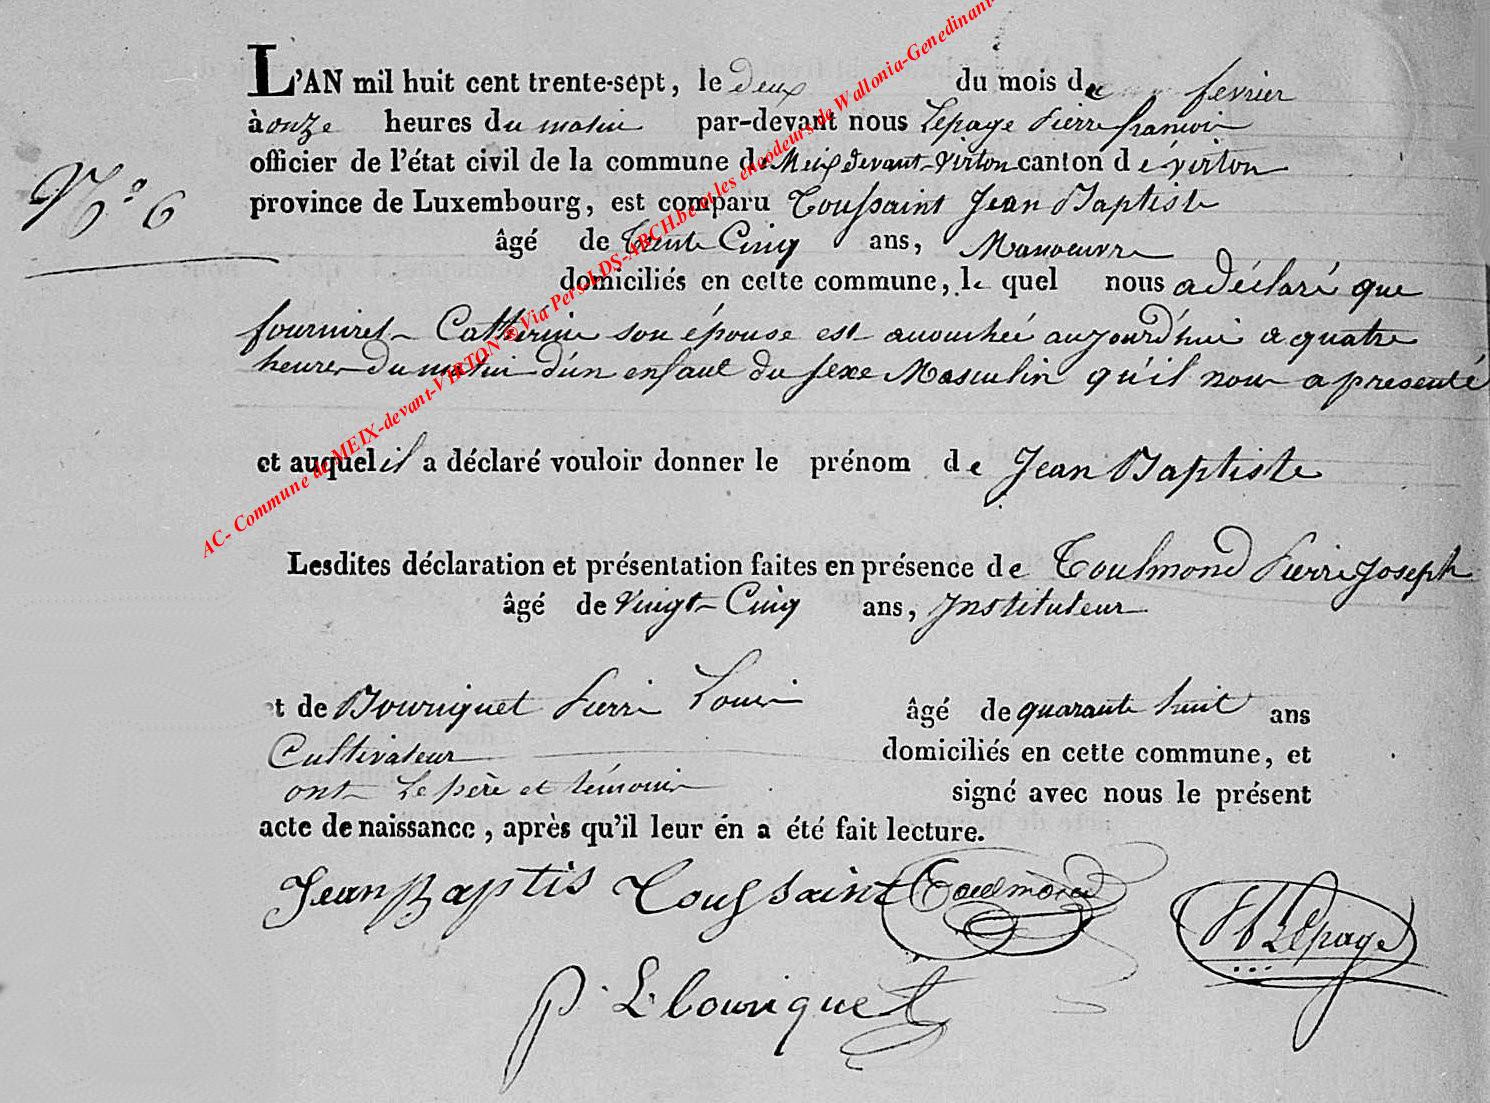 L'AN mil huit cent trente-sept, le deux du mois de fevrier
à onze heures du matin par-devant nous Lepage Pierre françois
officier de l'état civil de la commune de Meix devant-Virton canton de virton
N.° 6
province de Luxembourg, est comparu Toussaint Jean Baptiste
âgé de trente Cinq ans, Manoeuvre
domiciliés en cette commune, le quel nous a déclaré que
fourniret Catherine son épouse est accouchée aujourd'hui a quatre
heures du matin d'un enfant du sexe Masculin qu'il nous a presenté
et auquel il a déclaré vouloir donner le prénom de Jean Baptiste
Lesdites déclaration et présentation faites en présence de Toulmond Pierre Joseph
âgé de Vingt Cinq ans, Instituteur
et de Bouriquet Pierre Louis âgé de quarante huit ans
Cultivateur domiciliés en cette commune, et
ont Le père et témoins signé avec nous le présent
acte de naissance, après qu'il leur en a été fait lecture.
Jean Baptis Toussaint Toulmond
Lepage
P. L. bouriquet
AC- Commune de MEIX-devant-VIRTON ® Via Pers-LDS-ARCH.be et les encodeurs de Wallonia-Genedinant